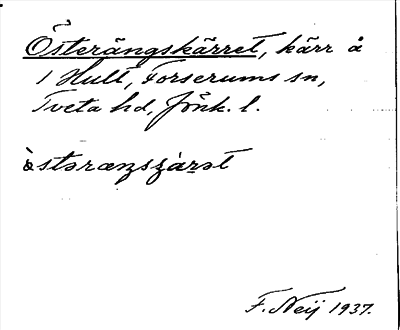 Österängskärret, kärr å
1 Hult, Forserums sn,
Tveta hd, Jönk. l.
F. Neij 1937.